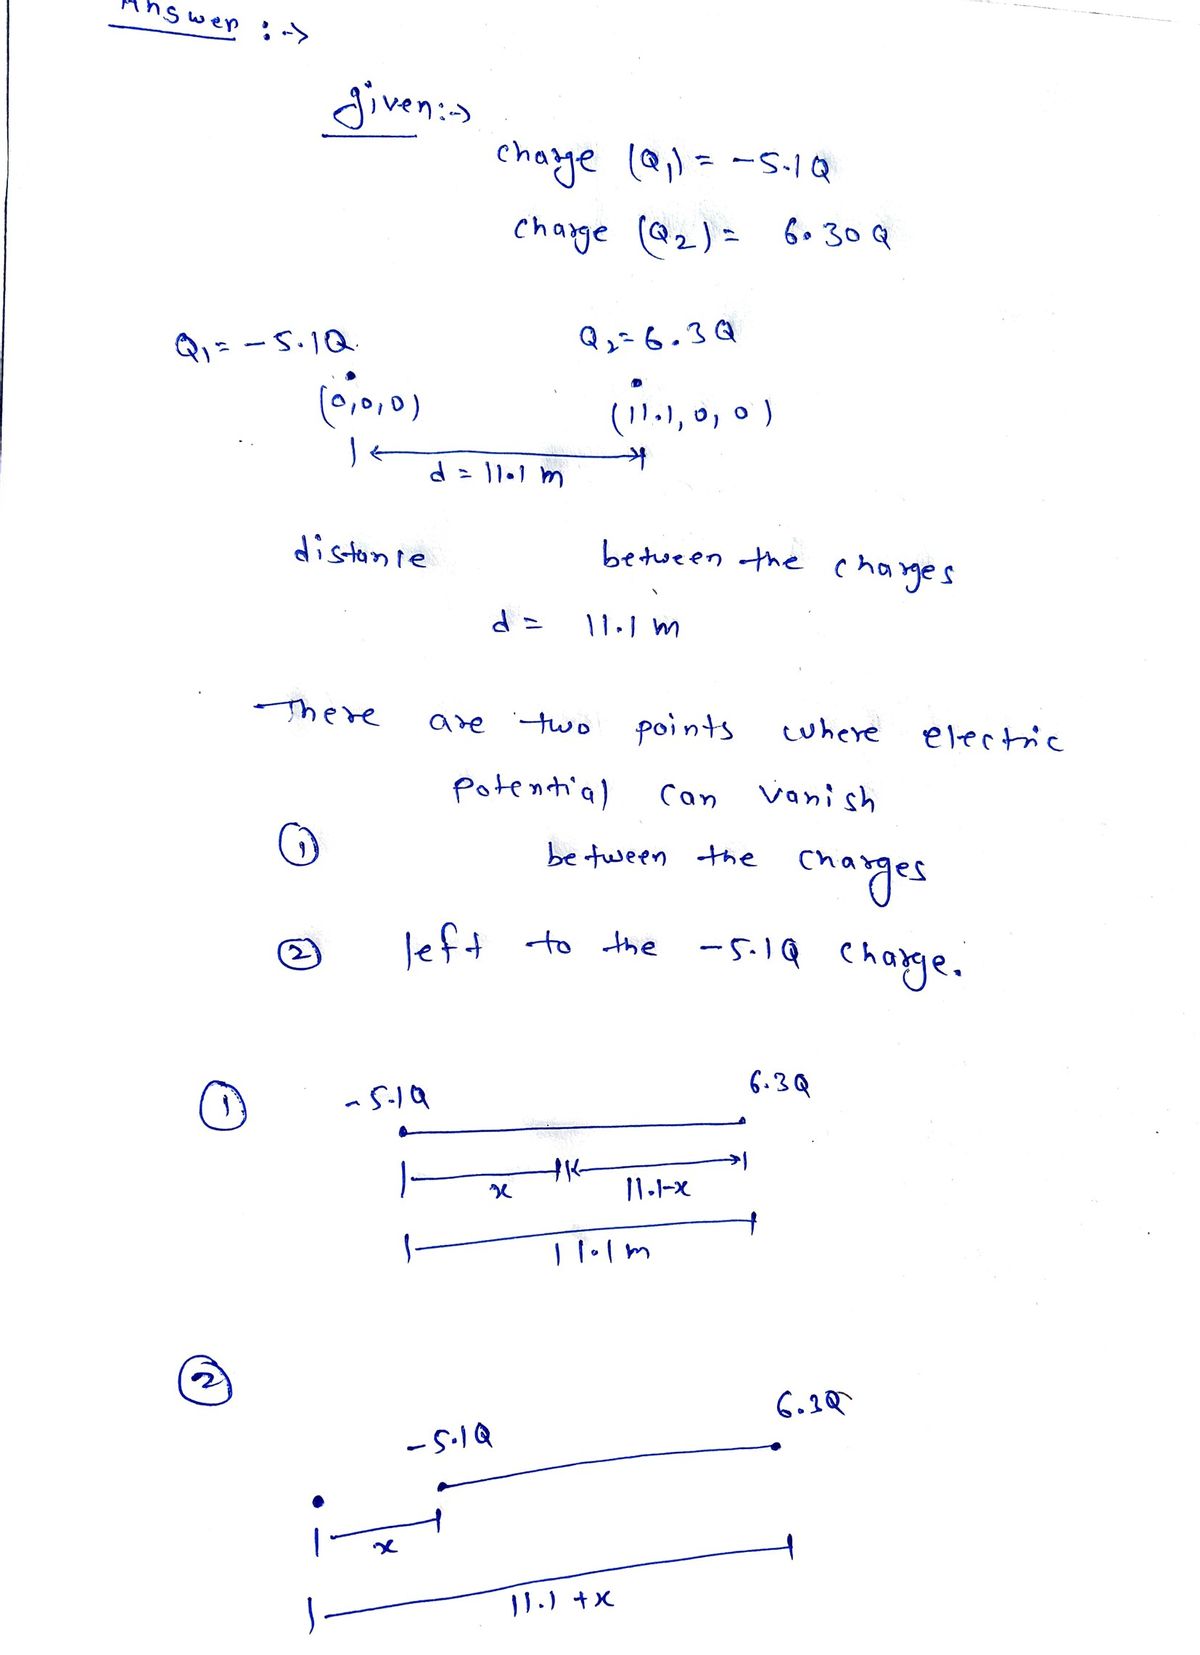 Answer :->
given:->
charge (Q1) = -5.1Q
charge (Q2) = 6.30Q
Q1 = -5.1Q Q2=6.3Q
(0,0,0) (11.1, 0, 0)
d = 11.1 m
distance between the charges
d = 11.1 m
There are two points where electric
potential can vanish
① between the charges
② left to the -5.1Q charge.
① -5.1Q 6.3Q
x 11.1-x
11.1m
②
-5.1Q 6.3Q
x
11.1+x